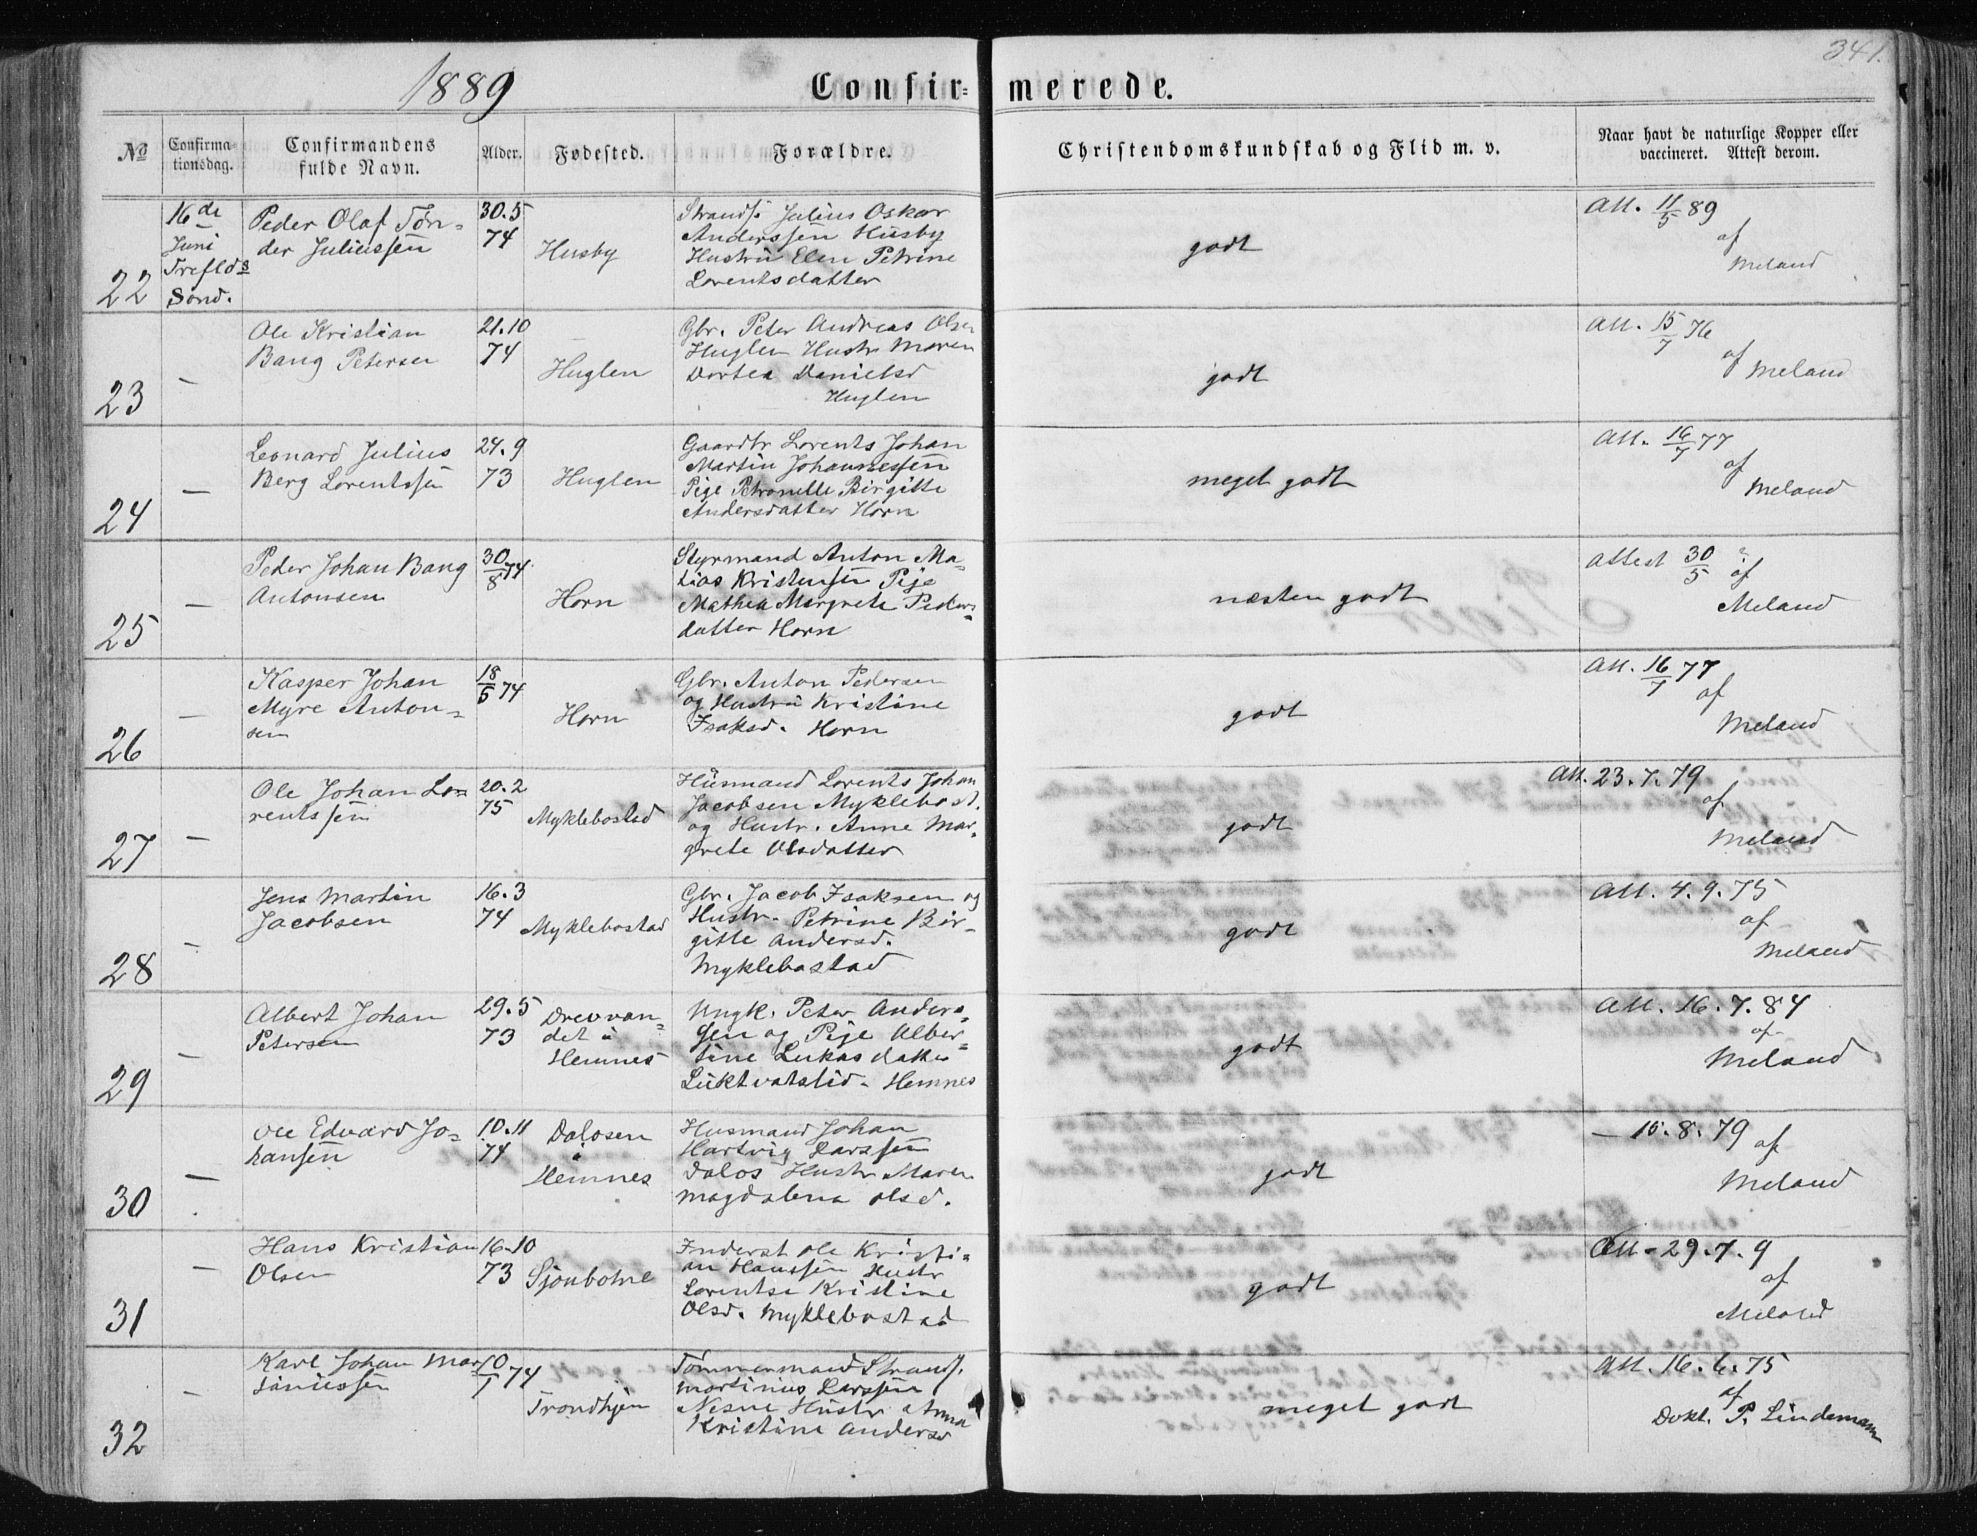 341.
1889
Confirmerede.
No
Confirmationsdag.
Confirmandens fulde Navn.
Alder.
Fødested.
Forældre.
Christendomskundskab og Flid m. v.
Naar havt de naturlige Kopper eller vaccineret. Attest derom.
22
16de
Juni
Treflds
Sønd.
Peder Olaf Tøn-
der Juliussen
30.5
74
Husby
Strands. Julius Oskar
Anderssen Husby
Hustru Elen Petrine
Lorentsdatter
godt
Att. 11/5 89
af
Meland
23
—
Ole Kristian
Bang Petersen
21.10
74
Huglen
Gbr. Peter Andreas Olsen
Huglen Hustr Maren
Dortea Danielsd
Huglen
godt
Att. 15/7 76
af
Meland
24
—
Leonard Julius
Berg Lorentssen
24.9
73
Huglen
Gaardbr Lorents Johan
Martin Johannessen
Pige Petronelle Birgitte
Andersdatter Horn
meget godt
Att. 16/7 77
af
Meland
25
—
Peder Johan Bang
Antonsen
30/8 74
Horn
Styrmand Anton Ma-
tias Kristensen Pige
Mathea Margrete Peders-
datter Horn
næsten godt
Attest 30/5 ?
af
Meland
26
—
Kasper Johan
Myre Anton-
sen
18/5 74
Horn
Gbr. Anton Pedersen
og Hustru Kristine
Isaksd. Horn
godt
Att. 16/7 77
af
Meland
27
—
Ole Johan Lo-
rentssen
20.2
75
Myklebostad
Husmand Lorents Johan
Jacobsen Myklebost.
og Hustr. Anne Mar-
grete Olsdatter
godt
Att. 23.7.79
af
Meland
28
—
Jens Martin
Jacobsen
16.3
74
Myklebostad
Gbr. Jacob Isaksen og
Hustr. Petrine Bir-
gitte Andersd.
Myklebostad
godt
Att. 4.9.75
af
Meland
29
—
Albert Johan
Petersen
29.5
73
Drevvan-
det i
Hemnes
Ungk. Peter Anders-
sen og Pige Alber-
tine Lukasdatter
Luktvatslid. Hemnes
godt
Att. 16.7.84
af
Meland
30
—
Ole Edvard Jo-
hansen
10.11
74
Dalosen
i
Hemnes
Husmand Johan
Hartvig Larssen
Dalos Hustr Maren
Magdalena Olsd.
godt
— 15.8.79 af
Meland
31
—
Hans Kristian
Olsen
16.10
73
Sjonbotne
Inderst Ole Kristi-
an Hanssen Hustr
Lorentse Kristine
Olsd. Myklebostad
godt
Att. 29.7.9
af
Meland
32
—
Karl Johan Mar-
tiniussen
10/1 74
Trondhjem
Tømmermand Strands.
Martinius Larssen
Nesne Hustr Anna
Kristine Andersd
meget godt
Att. 16.6.75
af
Dokt. P. Lindemann